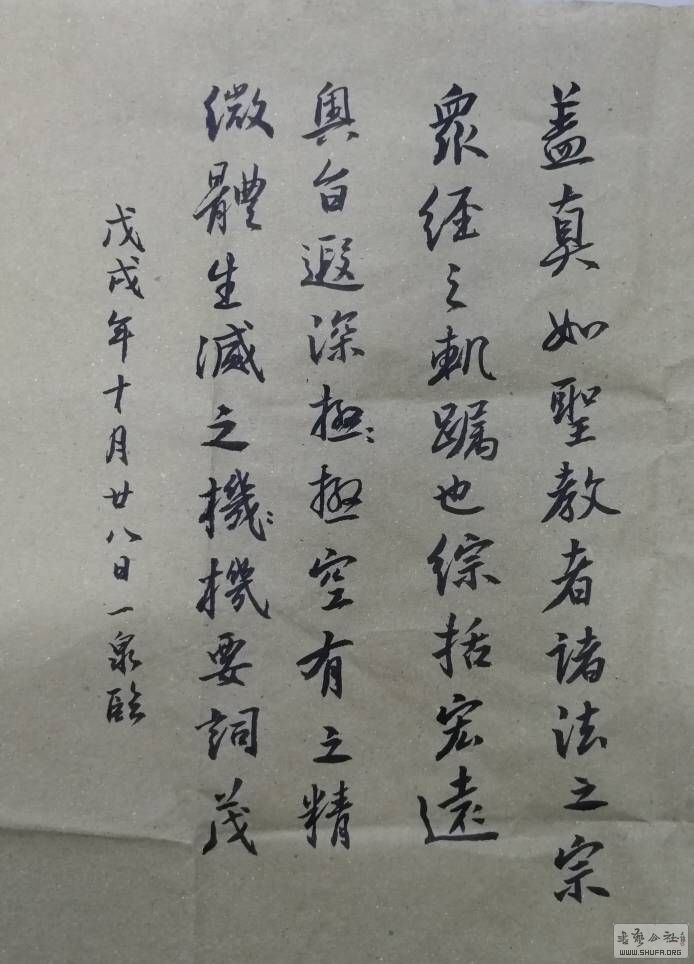 盖真如聖教者諸法之宗
眾經之軌躅也綜括宏遠
奧旨遐深極極空有之精
微體生滅之機機要詞茂
戊戌年十月廿八日一泉臨
书藝公社
WWW.SHUFA.ORG